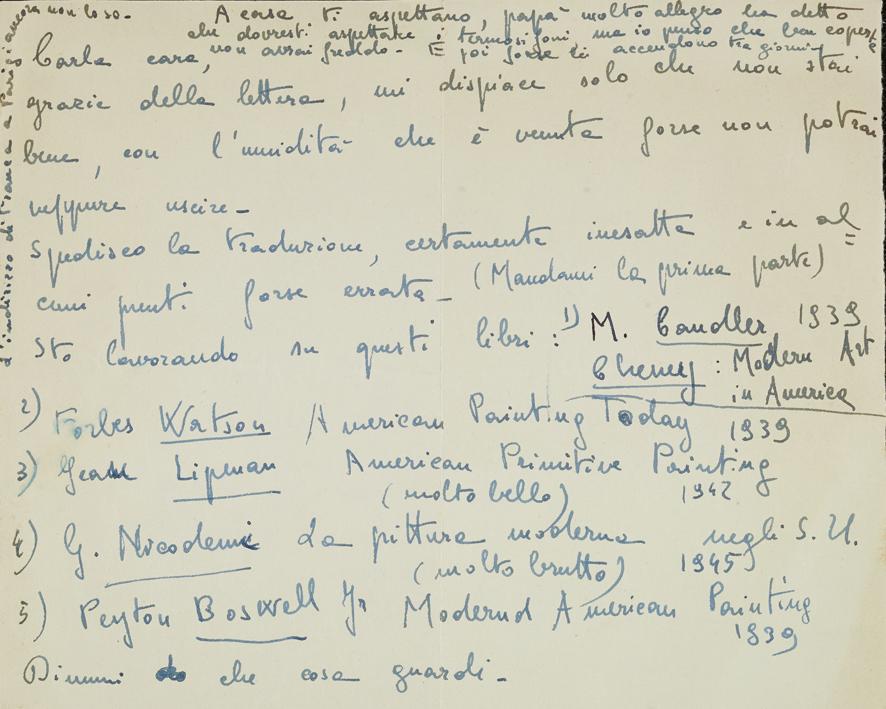 A casa ti aspettano, papà molto allegro ha detto
che dovresti aspettare i termosifoni ma io penso che ben coperta
non avrai freddo - E poi forse li accendono tra giorni
Carla cara,
grazie della lettera, mi dispiace solo che non stai
bene, con l'umidità che è venuta forse non potrai
neppure uscire -
Spedisco la traduzione, certamente inesatta e in al=
cuni punti forse errata - (Mandami la prima parte)
Sto lavorando su questi libri : 1) M. Candller 1939
Cheney : Modern Art
in America
2) Forbes Watson American Painting Today 1939
3) Jean Lipman American Primitive Painting
(molto bello) 1942
4) G. Nicodemi La pittura moderna negli S. U.
(molto brutto) 1945
5) Peyton Boswell Jr Modernd American Painting
1939
Dimmi che cosa guardi -
L'indirizzo di Franca a Parigi ancora non lo so -